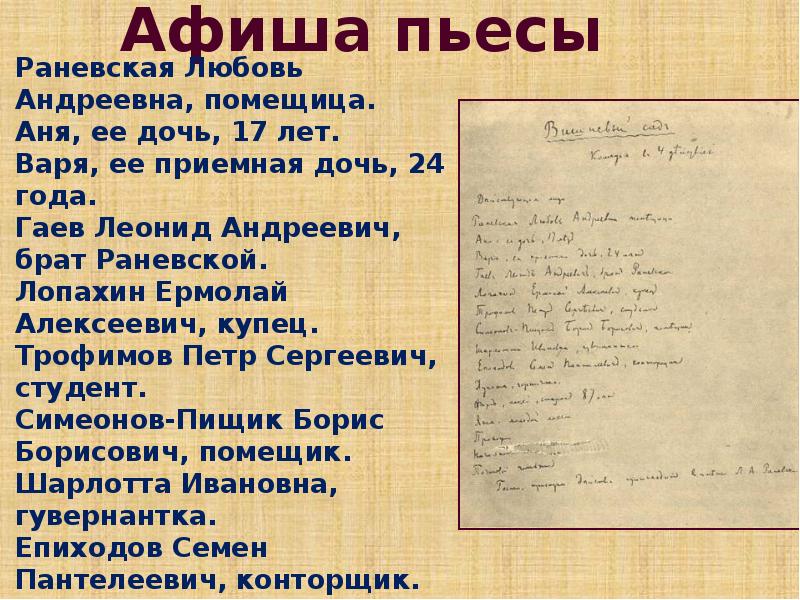 Афиша пьесы
Раневская Любовь
Андреевна, помещица.
Аня, ее дочь, 17 лет.
Варя, ее приемная дочь, 24
года.
Гаев Леонид Андреевич,
брат Раневской.
Лопахин Ермолай
Алексеевич, купец.
Трофимов Петр Сергеевич,
студент.
Симеонов-Пищик Борис
Борисович, помещик.
Шарлотта Ивановна,
гувернантка.
Епиходов Семен
Пантелеевич, конторщик.
Вишневый садъ
Комедія в 4 действіях
Действующія лица
Раневская Любовь Андреевна, помещица
Аня, ее дочь, 17 лет
Варя, ее приемная дочь, 24 лет
Гаев Леонид Андреевич, брат Раневской
Лопахин Ермолай Алексеевич, купец
Трофимов Петр Сергеевич, студент
Симеонов-Пищик Борис Борисович, помещик
Шарлотта Ивановна, гувернантка
Епиходов Семен Пантелеевич, конторщик
Дуняша, горничная
Фирс, лакей, старик 87 лет
Яша, молодой лакей
Прохожій